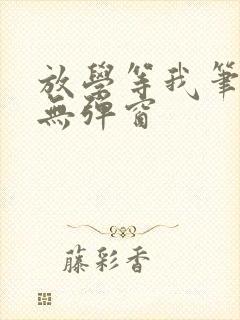 放學等我筆
無彈窗
藤彩香